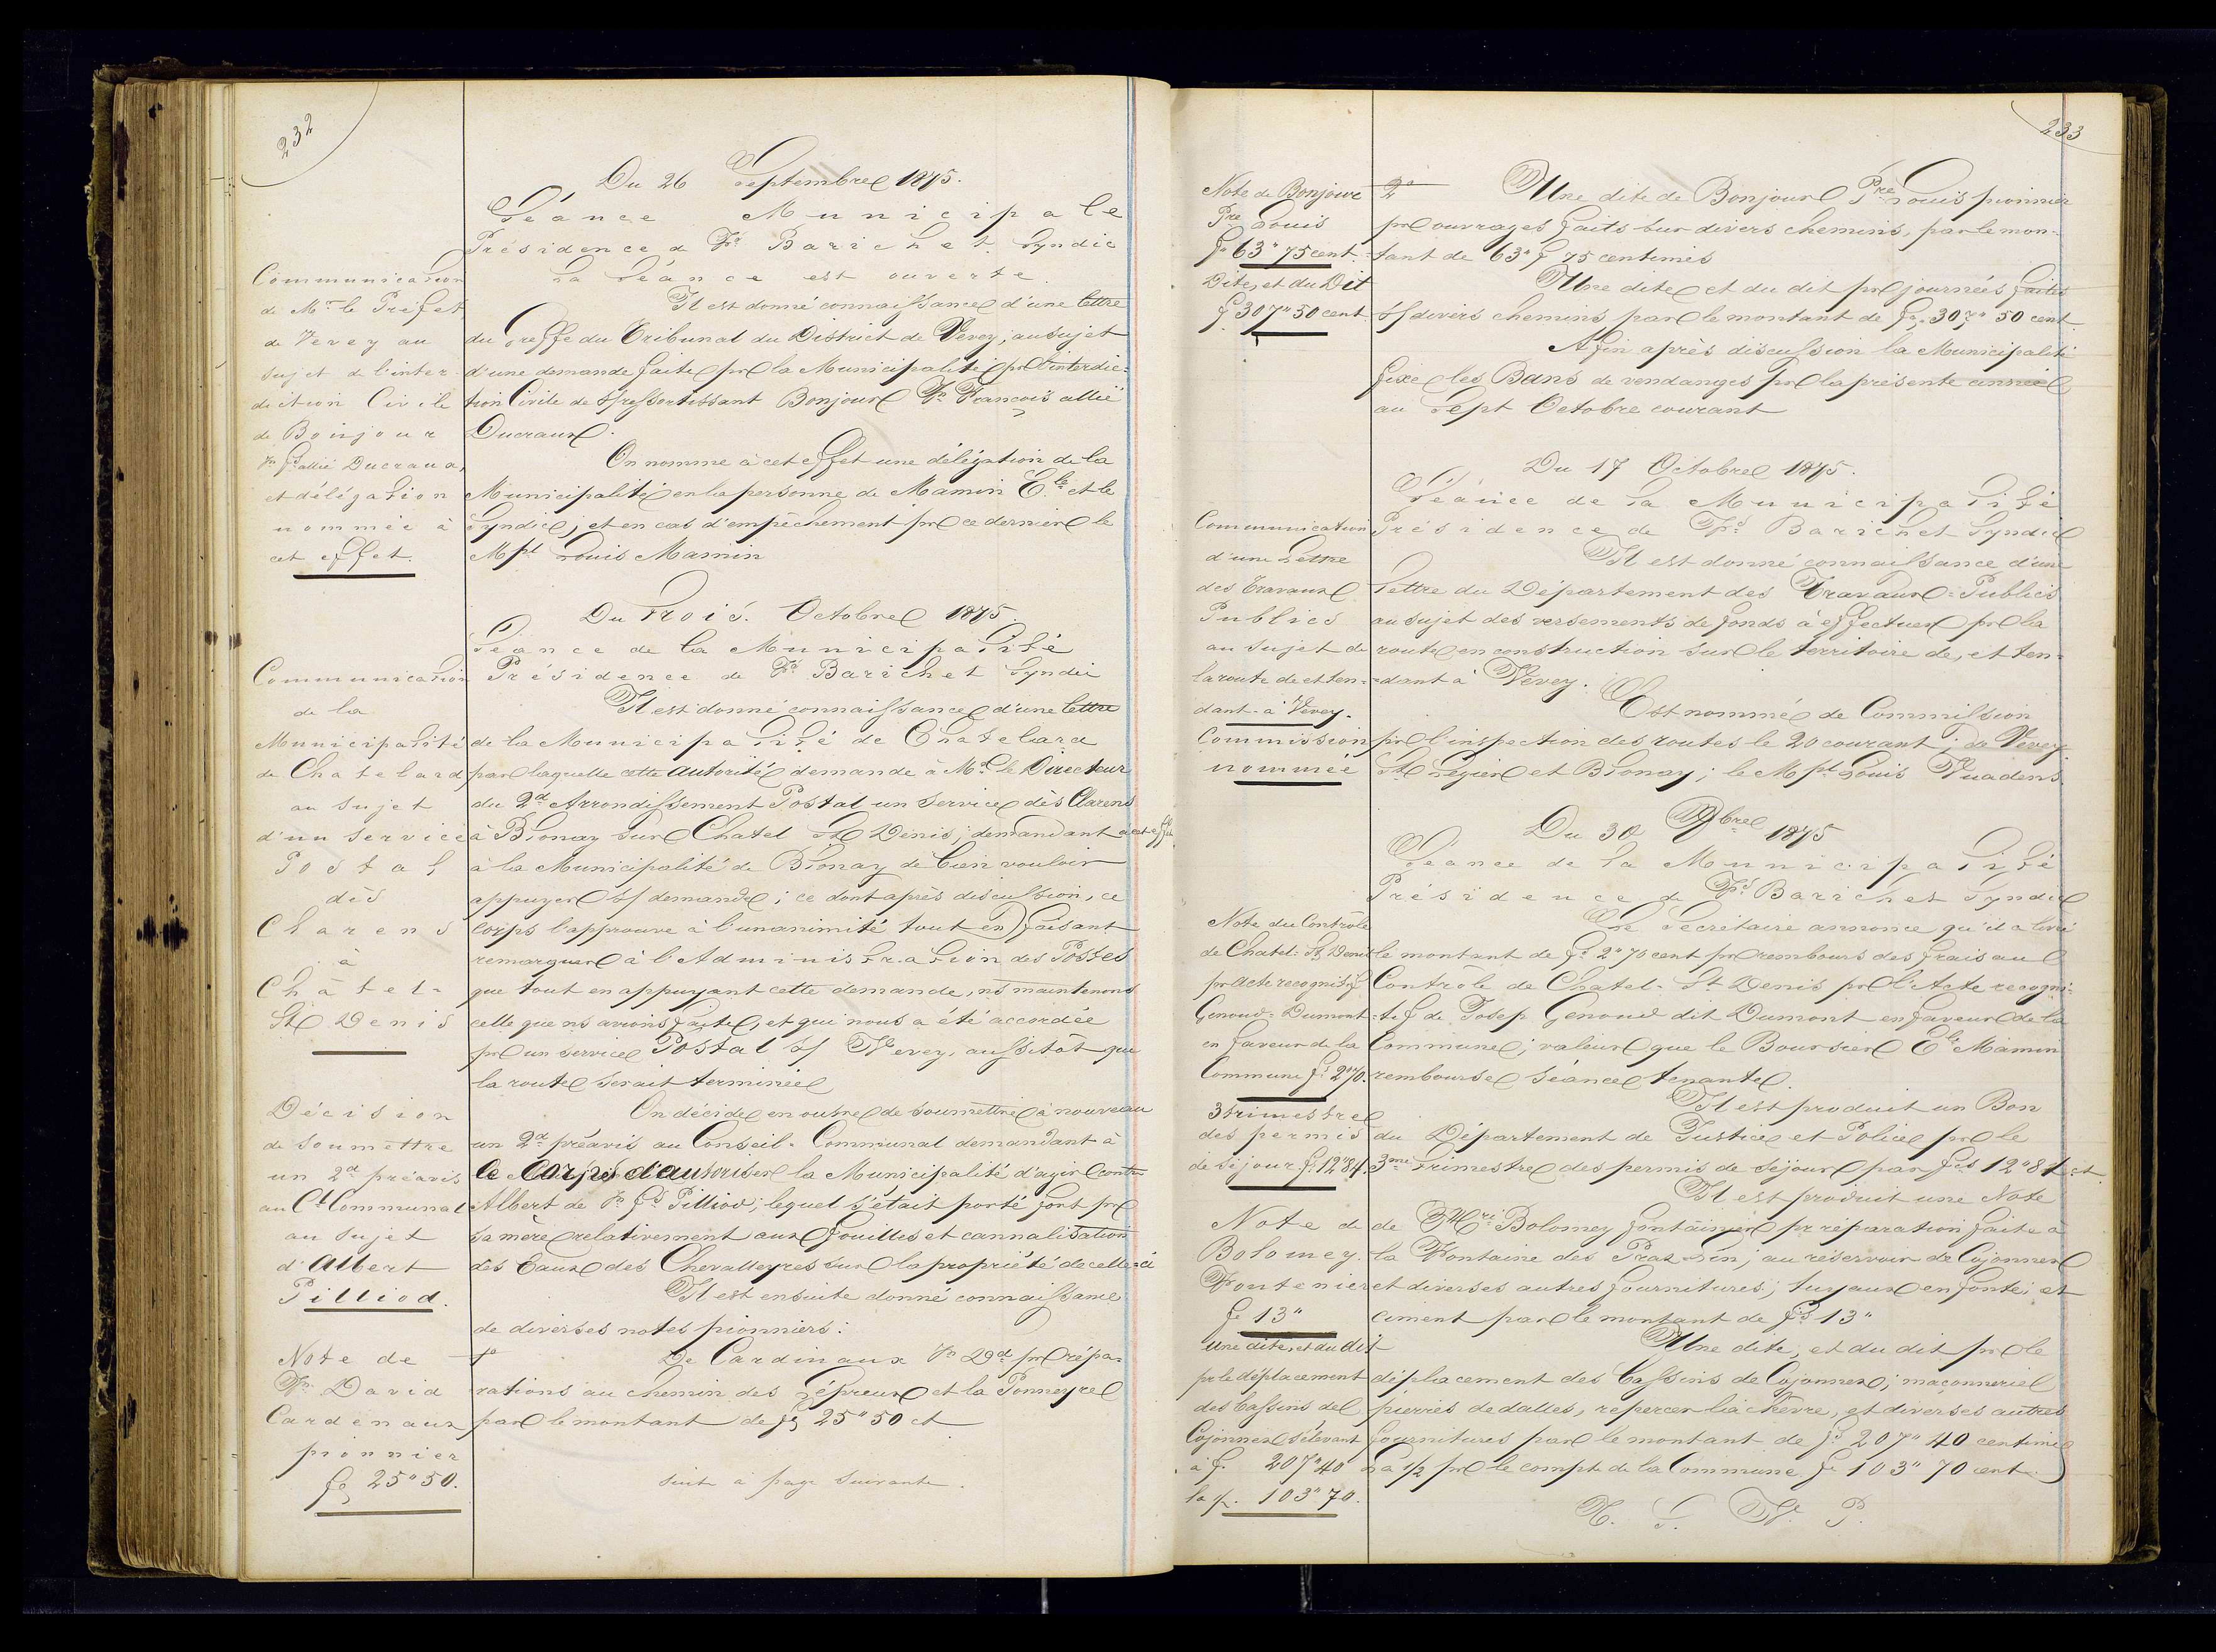 232
Du 26 Septembre 1875.
Séance Municipale
Présidence d Fs Barichet Syndic
La Séance est ouverte
Communication
de Mr le Préfet
de Vevey au
sujet de l'inter
diction Civile
de Bonjour
Jn Fs allié Ducraux,
et délégation
nommée à
cet effet.
Il est donné connaissance d'une lettre
du Greffe du Tribunal du District de Vevey, au sujet
d'une demande faite pr la Municipalité pr l'interdic-
tion Civile de S/ressortissant Bonjour Jn François allié
Ducraux.
On nomme à cet effet une délégation de la
Municipalité en la personne de Mamin Ele et le
Syndic; et en cas d'empêchement pr ce dernier le
Mpl Louis Mamin
Du Trois. Octobre 1875.
Séance de la Municipalité
Présidence de Fs Barichet Syndic
Communication
de la
Municipalité
de Chatelard
au sujet
d'un service
Postal
dès
Clarens
à
Châtel-
St Denis
Il est donné connaissance d'une lettre
de la Municipalité de Chatelard
par laquelle cette autorité demande à Mr le Directeur
du 2d Arrondissement Postal un Service dès Clarens
à Blonay sur Chatel St Denis; demandant à cet effet
à la Municipalité de Blonay de bien vouloir
appuyer S/ demande; ce dont après discussion, ce
corps l'approuve à l'unanimité tout en faisant
remarquer à l'Administration des Postes
que tout en appuyant cette demande, ns maintenons
celle que ns avions faite, et qui nous a été accordée
pr un service Postal S/ Vevey, aussitôt que
la route serait terminée
Décision
de soumettre
un 2d préavis
au Cl Communal
au sujet
d'Albert
Pilliod.
On décide en outre de soumettre à nouveau
un 2d préavis au Conseil-Communal demandant à
ce Corps d'autoriser la Municipalité d'agir contre
Albert de Jn Fs Pilliod; lequel s'était porté fort pr
sa mère relativement aux fouilles et cannalisation
des Eaux des Chevalleyres sur la propriété de celle-ci
Il est ensuite donné connaissance
de diverses notes pionniers:
Note de
Jn David
Cardenaux
pionnier
fs 25"50.
1o De Cardinaux Jn Dd pr répa-
rations au chemin des Lépreux et la Ponneyre
par le montant de fs 25"50 ct
suit à page suivante.
233
Note de Bonjour
Pre Louis
fs 63"75 cent.
2o Une dite de Bonjour Pre Louis pionnier
pr ouvrages faits sur divers chemins, par le mon-
tant de 63" f 75 centimes
Dite, et du Dit
f 307"50 cent.
Une dite et du dit pr journées faites
S/ divers chemins par le montant de fs. 307" 50 cent
Afin après discussion la Municipalité
fixe les Bans de vendanges pr la présente année
au Sept Octobre courant
Du 17 Octobre 1875.
Séance de la Municipalité
Présidence de Fs Barichet Syndic
Communication
d'une Lettre
des Travaux
Publics
au sujet de
la route de et ten-
dant à Vevey.
Il est donné connaissance d'une
lettre du Département des Travaux-Publics
au sujet des versements de fonds à effectuer pr la
route en construction sur le territoire de, et ten-
dant à Vevey.
Commission
nommée
Est nommé de Commission
pr l'inspection des routes le 20 courant; de Vevey
St Légier et Blonay; le Mpl Louis Vuadens.
Du 30 Xbre 1875
Séance de la Municipalité
Présidence de Fs Barichet Syndic
Note du Contrôle
de Chatel-St Denis
pr Acte recognitif
Genoud-Dumont
en faveur de la
Commune fs 2"70.
Le Secrétaire annonce qu'il a livré
le montant de fs 2"70 cent pr rembours des frais au
Contrôle de Chatel-St Denis pr l'Acte recogni-
tif de Josep Genoud dit Dumont en faveur de la
Commune; valeur que le Boursier Ele Mamin
rembourse séance tenante.
3 trimestre
des permis
de séjour fs. 12"84.
Il est produit un Bon
du Département de Justice et Police pr le
3me Trimestre des permis de séjour par fcs 12"84 ct.
Note de
Bolomey
Fontenier
fs 13"
Il est produit une Note
de Hri Bolomey fontainier pr réparation faite à
la Fontaine des Praz-Lin; au réservoir de Cojonnex
et diverses autres fournitures; tuyaux en fonte; et
ciment par le montant de fcs 13"
Une dite, et du dit
pr le déplacement
des bassins de
Cojonnex s'élevant
à f. 207"40
la ½. 103"70.
Une dite, et du dit pr le
déplacement des bassins de Cojonnex; maçonnerie
pierres de dalles, repercer la chèvre, et diverses autres
fournitures par le montant de fs 207"40 centimes
La ½ pr le compte de la Commune fs 103"70 cent.
T. S. V. P.